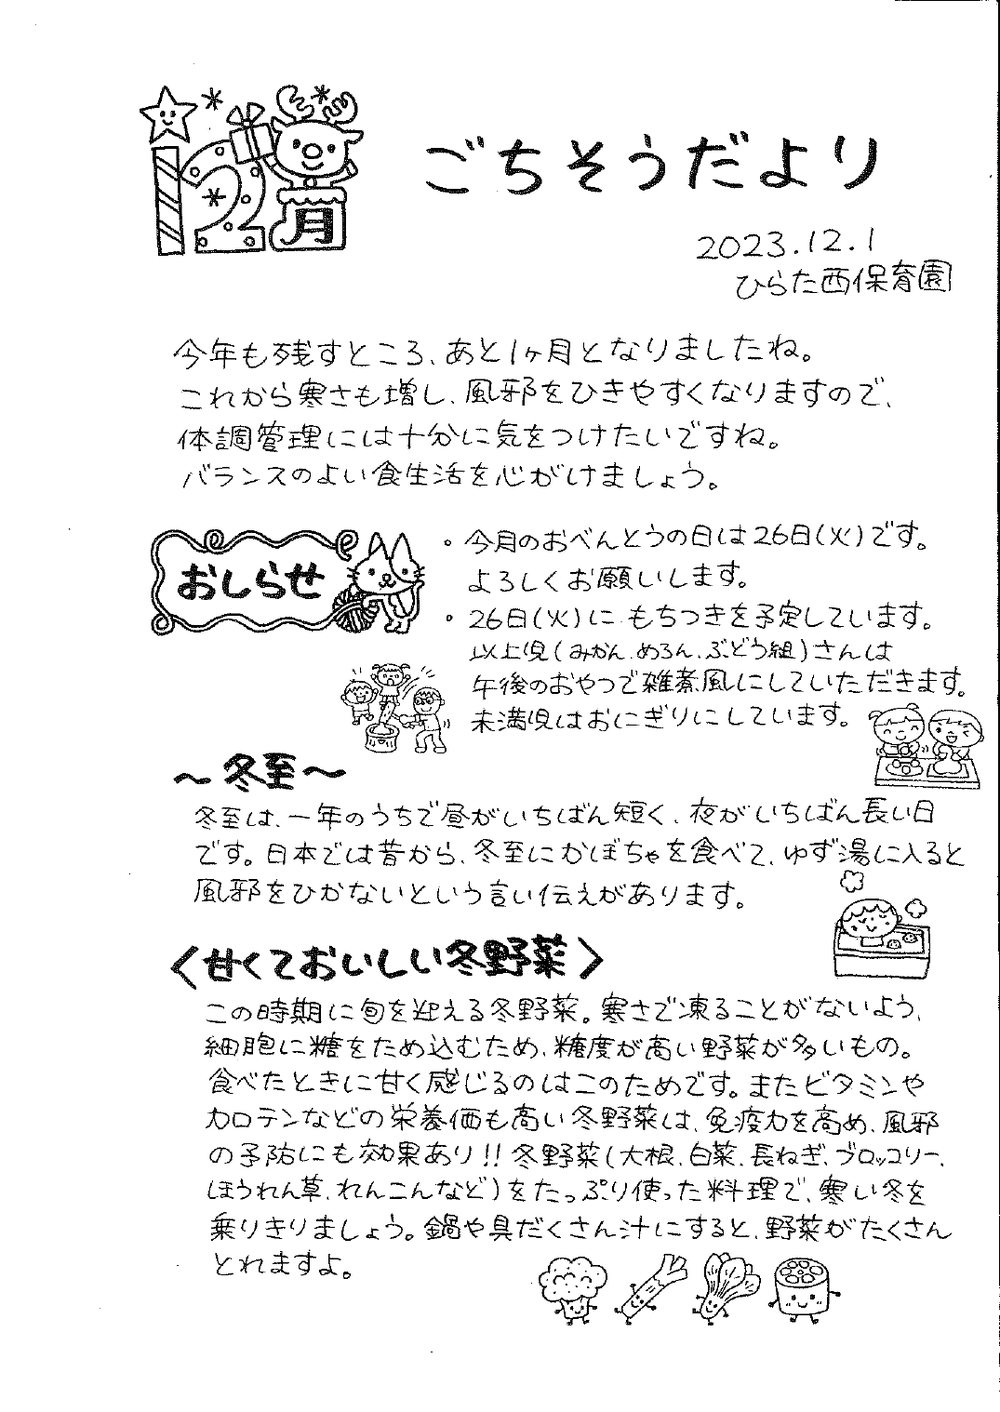 12月
ごちそうだより
2023.12.1
ひらた西保育園
今年も残すところ、あと1ヶ月となりましたね。
これから寒さも増し、風邪をひきやすくなりますので、
体調管理には十分に気をつけたいですね。
バランスのよい食生活を心がけましょう。
おしらせ
・今月のおべんとうの日は26日(火)です。
よろしくお願いします。
・26日(火)にもちつきを予定しています。
以上児(みかん、めろん、ぶどう組)さんは
午後のおやつで雑煮風にしていただきます。
未満児はおにぎりにしています。
~冬至~
冬至は、一年のうちで昼がいちばん短く、夜がいちばん長い日
です。日本では昔から、冬至にかぼちゃを食べて、ゆず湯に入ると
風邪をひかないという言い伝えがあります。
〈甘くておいしい冬野菜〉
この時期に旬を迎える冬野菜。寒さで凍ることがないよう、
細胞に糖をため込むため、糖度が高い野菜が多いもの。
食べたときに甘く感じるのはこのためです。またビタミンや
カロテンなどの栄養価も高い冬野菜は、免疫力を高め、風邪
の予防にも効果あり!!冬野菜(大根、白菜、長ねぎ、ブロッコリー、
ほうれん草、れんこんなど)をたっぷり使った料理で、寒い冬を
乗りきりましょう。鍋や具だくさん汁にすると、野菜がたくさん
とれますよ。